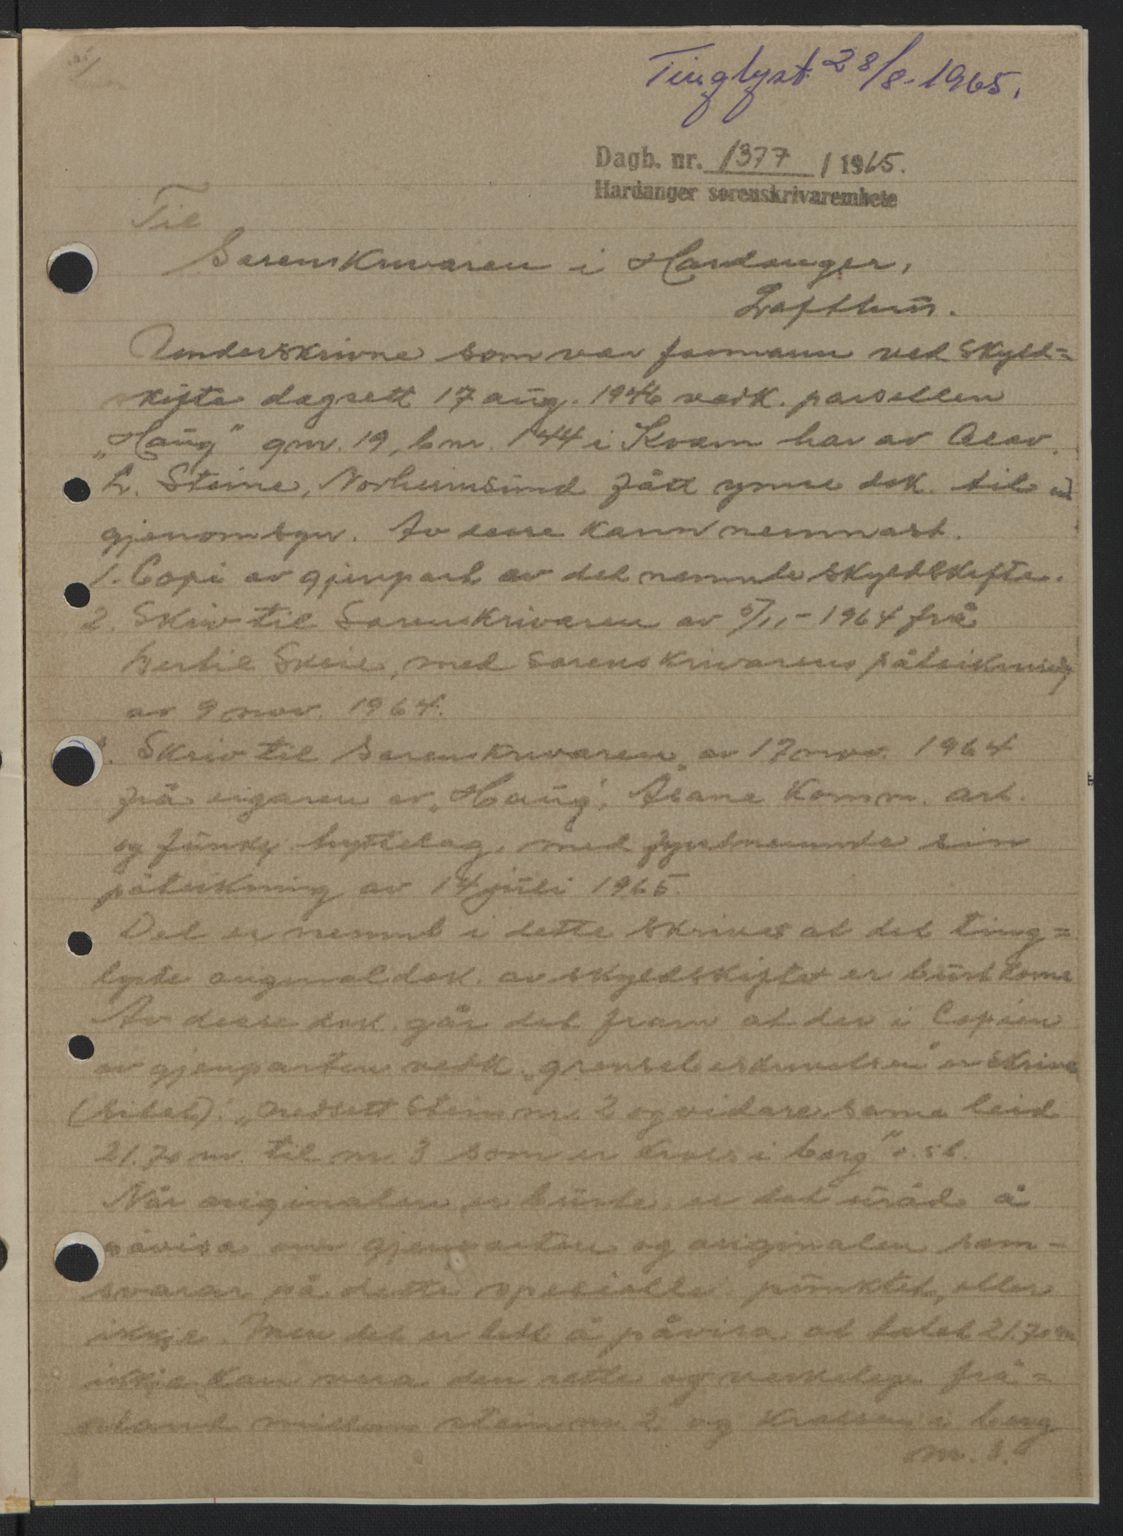 Tinglyst 28/8-1965.
Dagb. nr. 1377 / 1965.
Hardanger sorenskrivarembete
Til
Sorenskrivaren i Hardanger,
Lofthus.
Underskrivne som var formann ved skyld=
skifte dagsett 17 aug. 1946 vedk. parsellen
„Haug" gnr. 19, bnr. 144 i Kvam har av Olav
L. Steine, Norheimsund fått ymse dok. til
gjenomsyn. Av desse kann nemnast.
1. Copi av gjenpart av det nemnde skyldskifte.
2. Skriv til Sorenskrivaren av 5/11-1964 frå
Bertil Skeie, med sorenskrivarens påteikning
av 9 nov. 1964.
3. Skriv til Sorenskrivaren av 17 nov. 1964
frå eigaren av „Haug", Åsane Komm. arb.
og funksj. hyttelag, med fylst nemnde sin
påteikning av 14 juli 1965.
Det er nemnt i dette skrivet at det ting=
lyste original dok. av skyldskiftet er burt kome
Av desse dok. går det fram at der i Copien
av gjenparten vedk. „grensebeskrivelsen" er skrive
(sitat): „nedsett Stein nr. 2 og vidare same leid
21.70 m. til nr. 3 som er kross i berg" o. sb.
Når originalen er burte, er det uråd å
påvisa om gjenparten og originalen sam-
svarar på dette spesielle punktet, eller
ikkje. Men det er lett å påvisa, at talet 21.70 m
ikkje kan vera den rette og verkelege frå=
stand millom stein nr. 2 og krossen i berg
nr. 3.